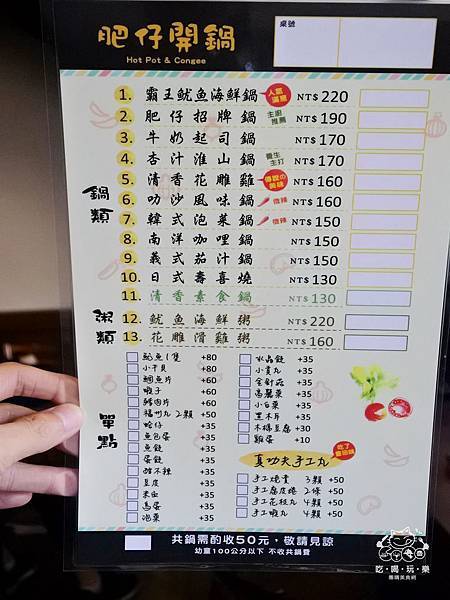 肥仔開鍋
Hot Pot & Congee
桌號
鍋類
1. 霸王魷魚海鮮鍋 人氣滿點 NT$ 220
2. 肥仔招牌鍋 主廚推薦 NT$ 190
3. 牛奶起司鍋 NT$ 170
4. 杏汁淮山鍋 養生主打 NT$ 170
5. 清香花雕雞 傳說の美味 NT$ 160
6. 叻沙風味鍋 微辣 NT$ 160
7. 韓式泡菜鍋 微辣 NT$ 150
8. 南洋咖哩鍋 NT$ 150
9. 義式茄汁鍋 NT$ 150
10. 日式壽喜燒 NT$ 130
11. 清香素食鍋 NT$ 130
粥類
12. 魷魚海鮮粥 NT$ 220
13. 花雕滑雞粥 NT$ 160
單點
魷魚1隻 +80
小干貝 +80
鯛魚片 +60
蝦子 +60
豬肉片 +60
福州丸2顆 +50
蛤仔 +35
魚包蛋 +35
魚餃 +35
蛋餃 +35
甜不辣 +35
豆皮 +35
米血 +35
鳥蛋 +35
泡菜 +35
水晶餃 +35
小貢丸 +35
金針菇 +35
高麗菜 +35
小白菜 +35
黑木耳 +35
木棉豆腐 +30
雞蛋 +10
真功夫手工丸
手工燒賣 3顆 +50
手工腐皮捲 2條 +50
手工花枝丸 4顆 +50
手工蝦丸 4顆 +50
共鍋需酌收50元，敬請見諒
幼童100公分以下 不收共鍋費
吃·喝·玩·樂